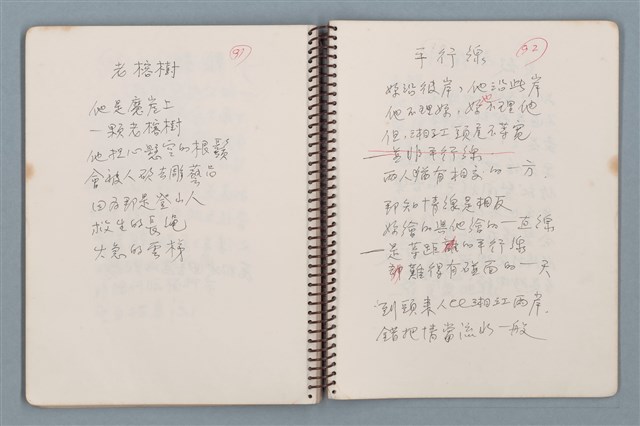 91
老榕樹
他是魔崖上
一顆老榕樹
他担心懸空的根鬚
會被人砍去雕藝品
因為那是登山人
救生的長繩
火急的雲梯
92
平行線
妳沿彼岸,他沿此岸
他不理妳,妳也不理他
但湘江頭尾不等寬
並非平行線
兩人猶有相交的一方
那知情緣是相反
妳繪的與他繪的一直線
一是等距離的平行線
難得有碰面的一天
到頭來人比湘江兩岸
錯把情當流水一般